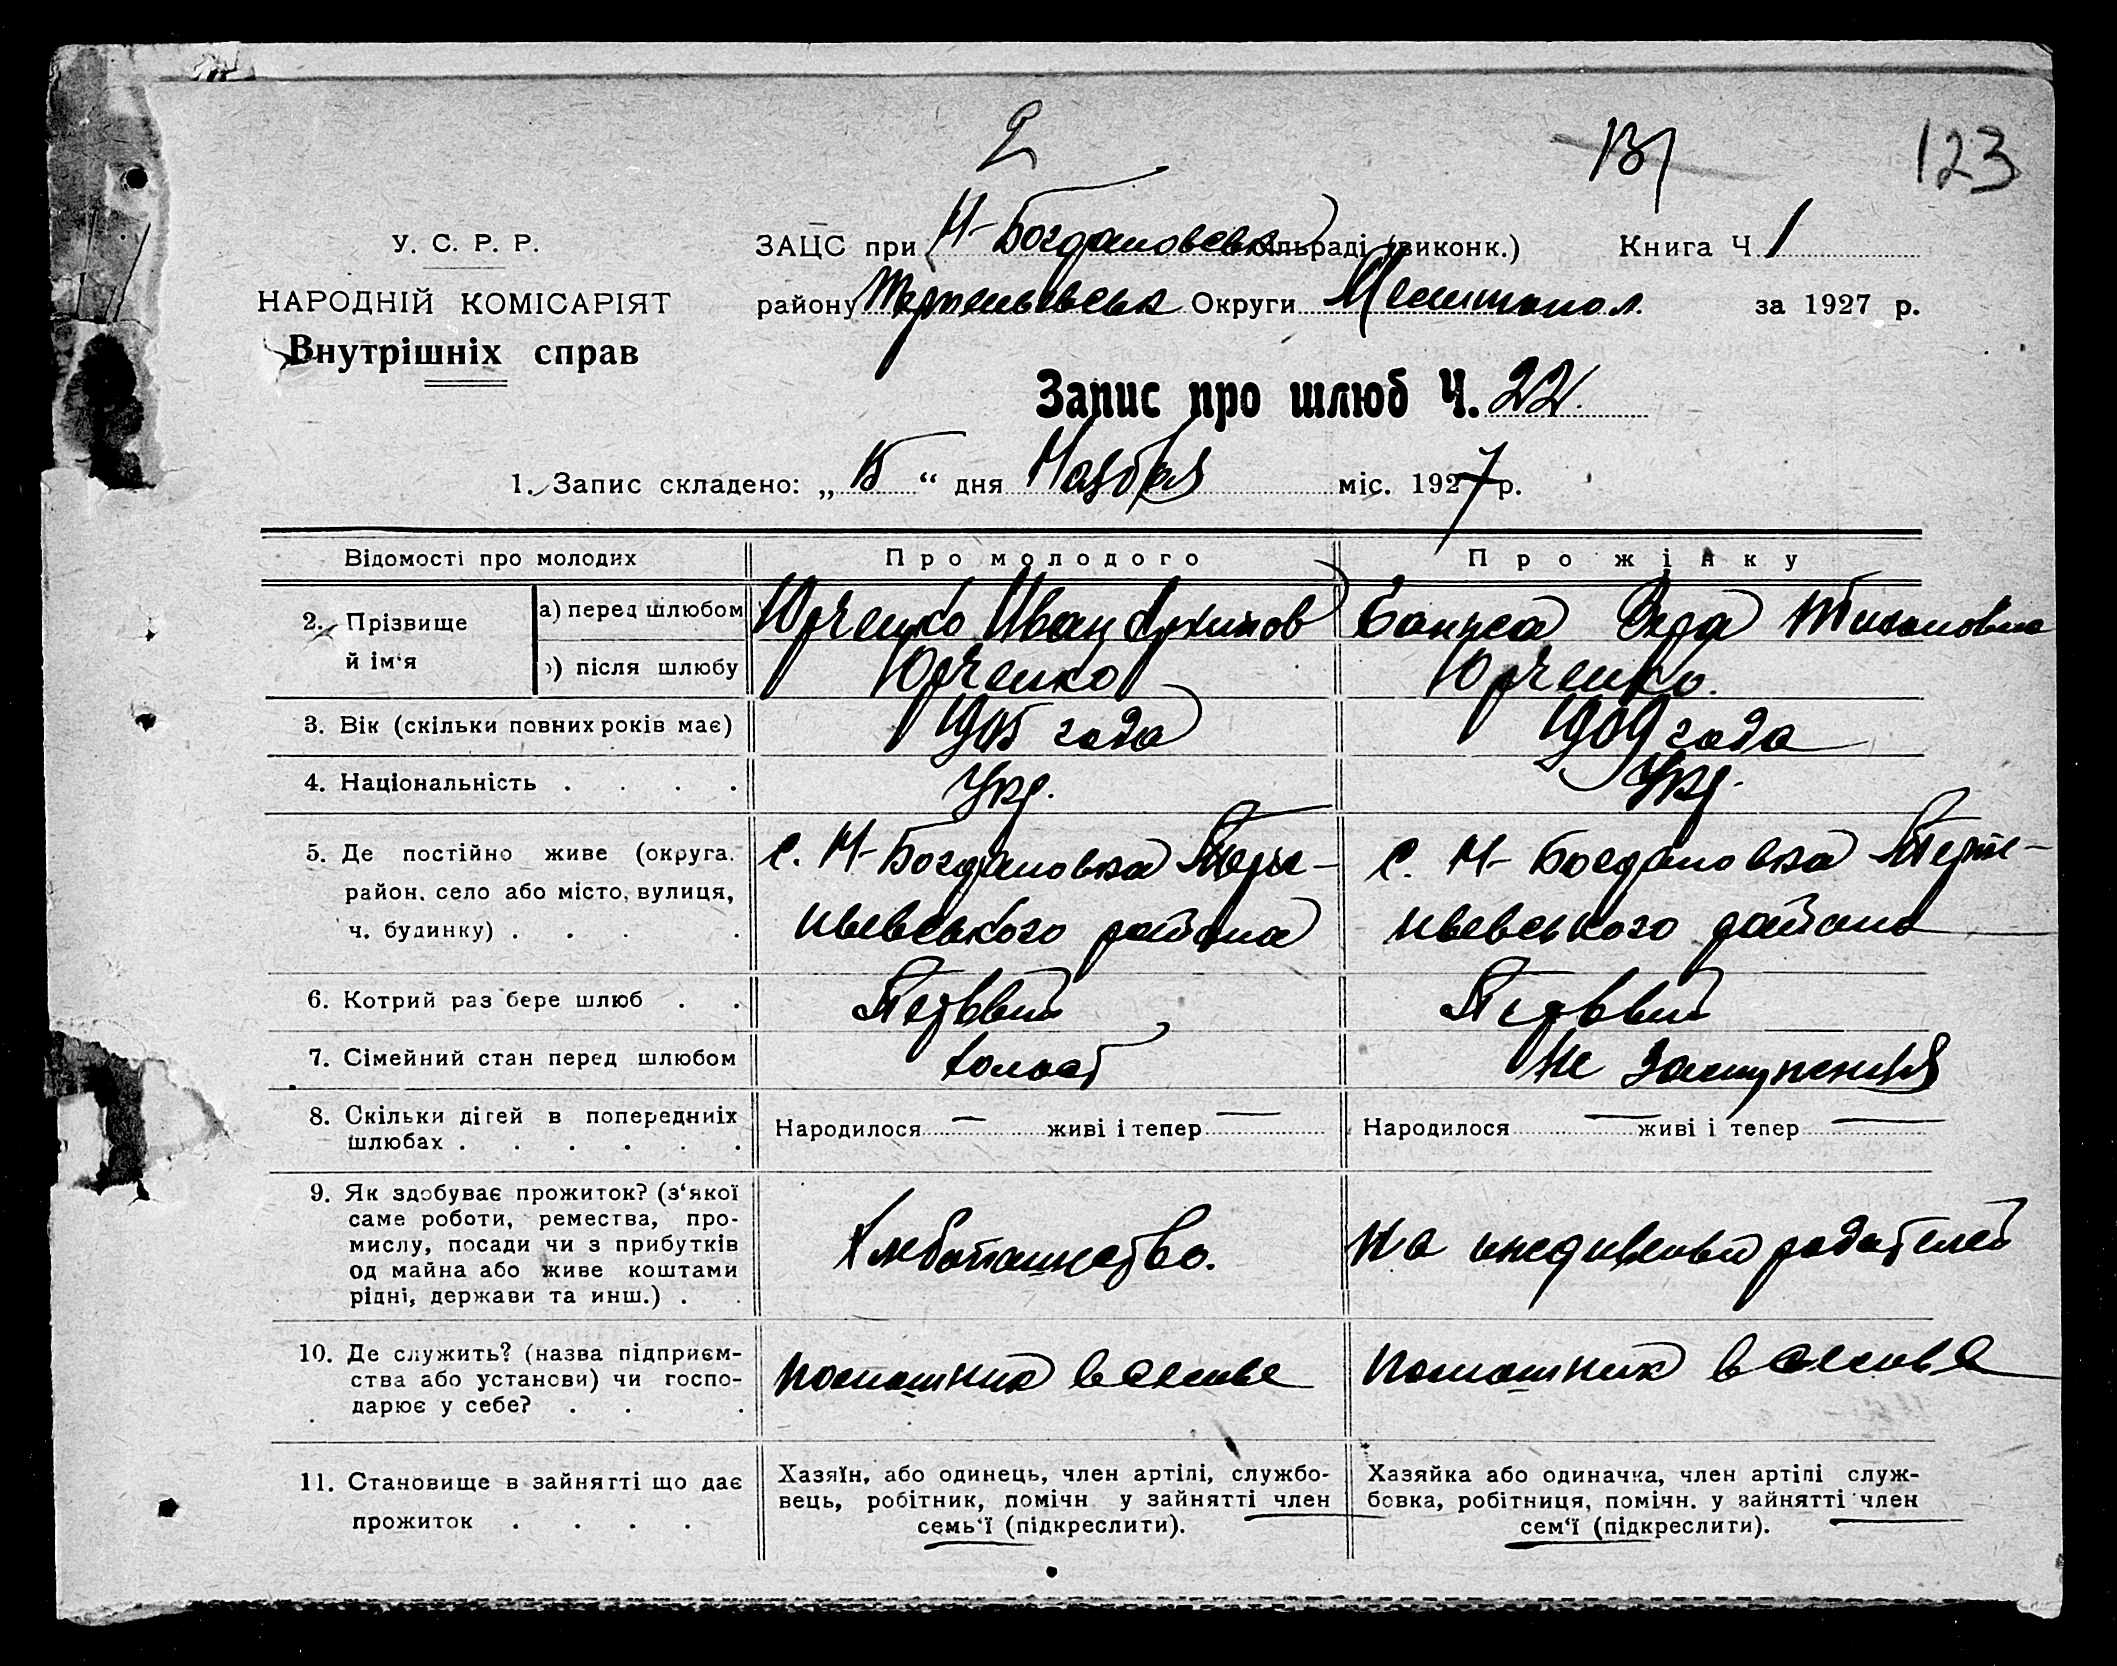 2
131
123
У. С. Р. Р.
НАРОДНІЙ КОМІСАРІЯТ
Внутрішніх справ
ЗАЦС при Н-Богдановськ сільраді (виконк.) Книга Ч 1
району Терпеньевськ Округи Мелитопол. за 1927 р.
Запис про шлюб Ч. 22.
1. Запис складено: „ 15 “ дня Ноября міс. 1927 р.
Відомості про молодих
Про молодого
Про жінку
2. Прізвище й ім‘я
а) перед шлюбом
Юрченко Иван Архипов
Вера
б) після шлюбу
Юрченко
Юрченко.
3. Вік (скільки повних років має)
1905 года
1909 года
4. Національність . . . .
Укр.
Укр.
5. Де постійно живе (округа.
район, село або місто, вулиця,
ч. будинку) . . . .
с. Н-Богдановка Терпе-
ньевського района
с. Н-Богдановка Терпе-
ньевського района
6. Котрий раз бере шлюб . .
Первый
Первый
7. Сімейний стан перед шлюбом
холост
не
8. Скільки дітей в попередниіх
шлюбах . . . . . .
Народилося — живі і тепер —
Народилося — живі і тепер —
9. Як здобуває прожиток? (з‘якої
саме роботи, ремества, про-
мислу, посади чи з прибутків
од майна або живе коштами
рідні, держави та инш.) . .
Хлебопашество.
На иждивении родителей
10. Де служить? (назва підприєм-
ства або установи) чи госпо-
дарює у себе? . . .
помошник в семье
помошник в семье
11. Становище в зайнятті що дає
прожиток . . . .
Хазяїн, або одинець, член артілі, службо-
вець, робітник, помічн у зайнятті член
семь‘ї (підкреслити).
Хазяйка або одиначка, член артілі служ-
бовка, робітниця, помічн. у зайнятті член
сем‘ї (підкреслити).